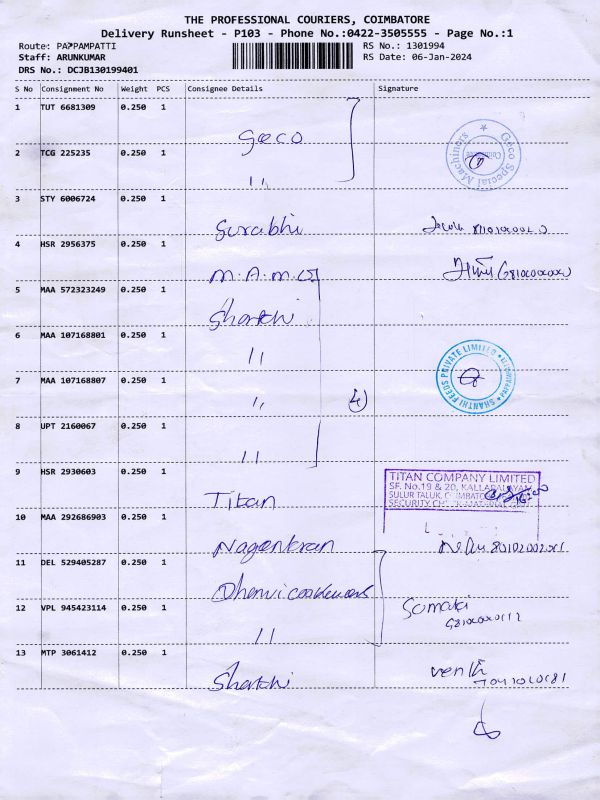 THE PROFESSIONAL COURIERS, COIMBATORE
Delivery Runsheet - P103 - Phone No.:0422-3505555 - Page No.:1
Route: PAPPAMPATTI
RS No.: 1301994
Staff: ARUNKUMAR
RS Date: 06-Jan-2024
DRS No.: DCJB130199401
S No Consignment No Weight PCS Consignee Details Signature
1 TUT 6681309 0.250 1 Geco
Geco Special Machiners
2 TCG 225235 0.250 1 "
3 STY 6006724 0.250 1 Surabhi
4 HSR 2956375 0.250 1 M.A.M.
5 MAA 572323249 0.250 1 Shanthi
6 MAA 107168801 0.250 1 "
SHANTHI FEEDS PRIVATE LIMITED
7 MAA 107168807 0.250 1 " 4
8 UPT 2160067 0.250 1 "
9 HSR 2930603 0.250 1 Titan
TITAN COMPANY LIMITED
SF. No.19 & 20, KALLAPALAYAM
SULUR TALUK, COIMBATORE
SECURITY
10 MAA 292686903 0.250 1 Nagentran
11 DEL 529405287 0.250 1
12 VPL 945423114 0.250 1 "
13 MTP 3061412 0.250 1 Shakthi